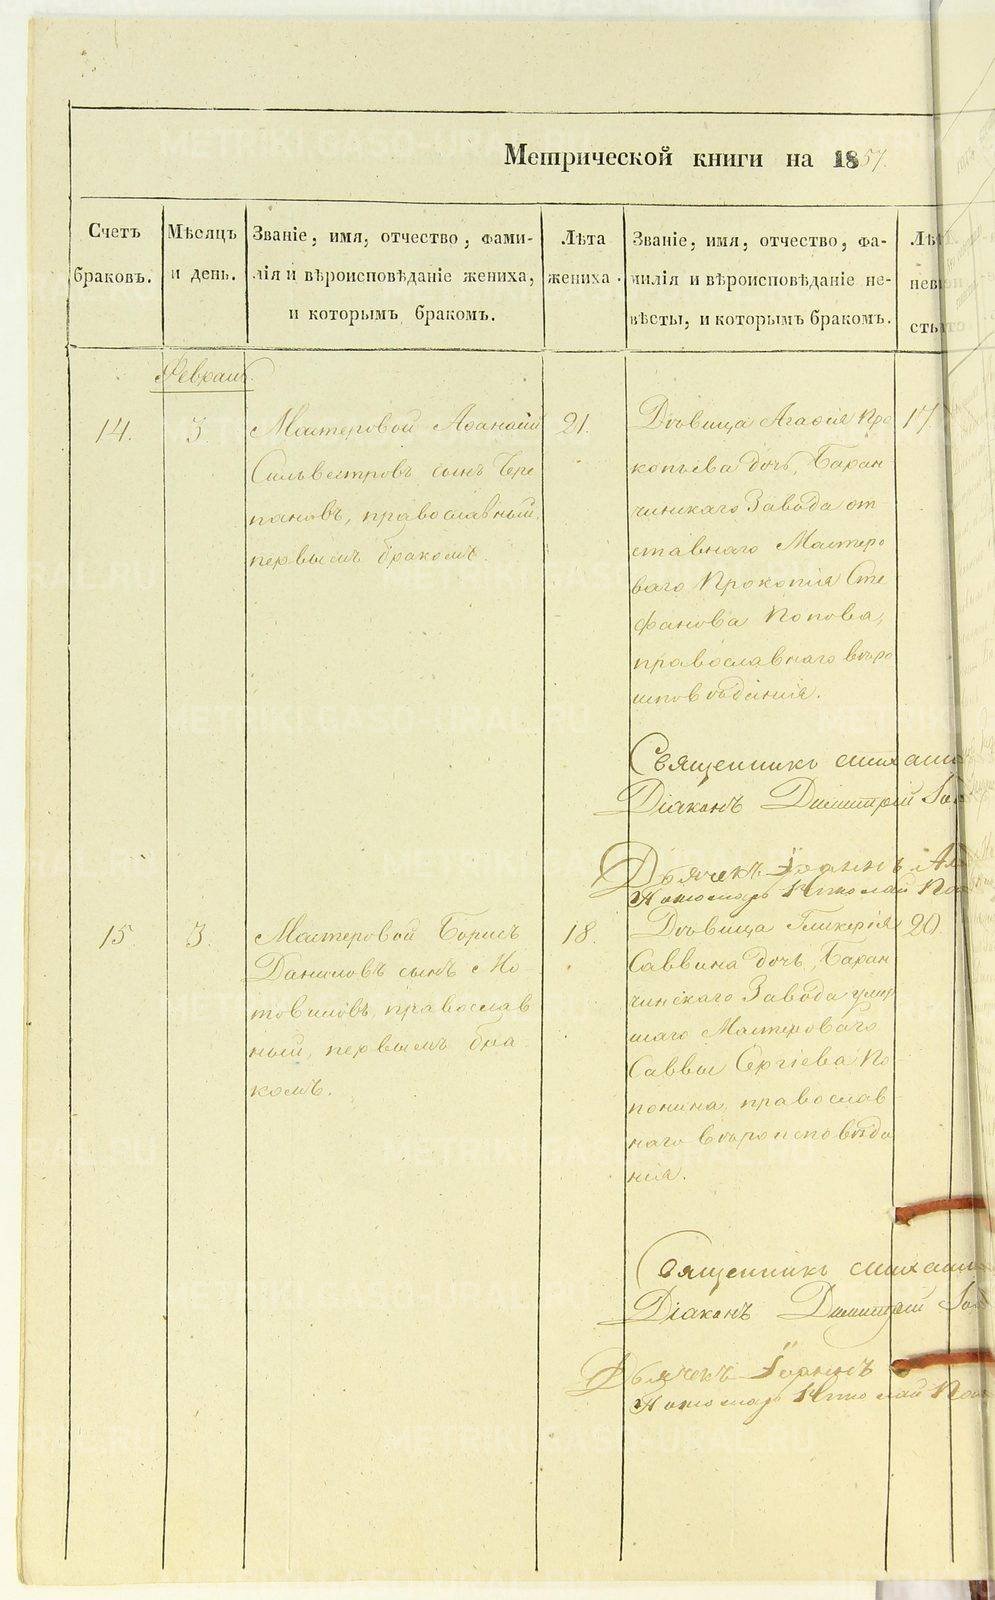 Метрической книги на 1857.
Счетъ
браковъ.
Мѣсяцъ
и день.
Званіе, имя, отчество, фами-
лія и вѣроисповѣданіе жениха,
и которымъ бракомъ.
Лѣта
жениха.
Званіе, имя, отчество, фа-
милія и вѣроисповѣданіе не-
вѣсты, и которымъ бракомъ.
Лѣт
невѣ
сты
Февраль.
14.
3.
Мастеровой Аѳанасій
Сильвестровъ сынъ Чере
пановъ, православный,
первымъ бракомъ.
21.
Дѣвица Агафія Про
копьева дочь, Баран
чинскаго Завода от
ставнаго Мастеро
ваго Прокопія Сте
фанова Попова,
православнаго вѣро
исповѣданія.
17
Священникъ
Діаконъ Димитрій
Дьячекъ Іоаннъ
Пономарь Николай
15.
3.
Мастеровой Борисъ
Даниловъ сынъ Мо
товиловъ, православ
ный, первымъ бра
комъ.
18.
Дѣвица Гликерія
Саввина дочь, Баран
чинскаго Завода умер
шаго Мастероваго
Саввы Сергіева По
понина, православ
наго вѣроисповѣда
нія.
20.
Священникъ
Діаконъ Димитрій
Дьячекъ Іоаннъ
Пономарь Николай
METRIKI.GASO-URAL.RU